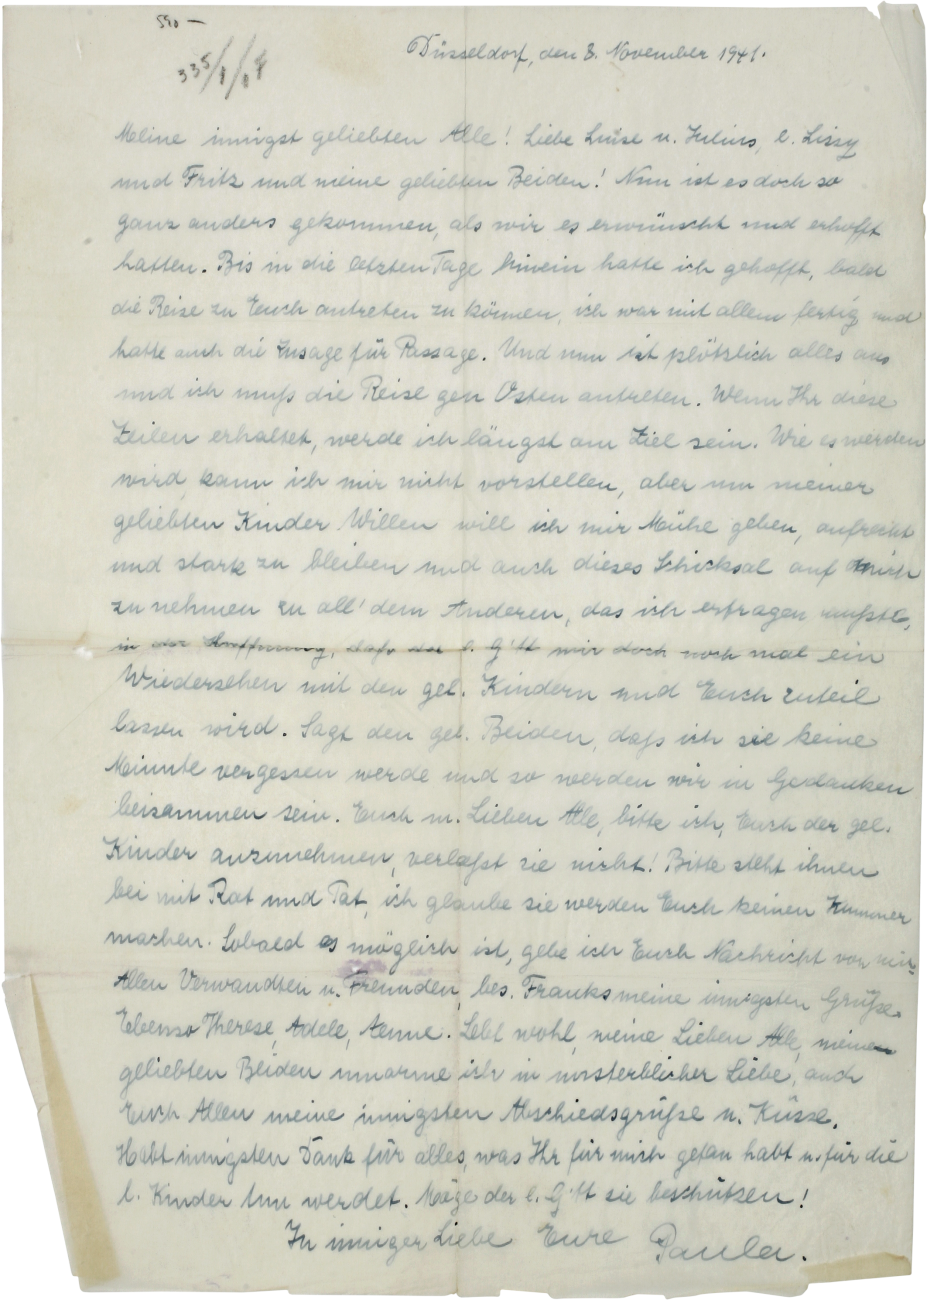 590 —
335/1/14
Düsseldorf, den 8. November 1941.
Meine innigst geliebten Alle! Liebe Luise u. Julius, l. Lissy
und Fritz und meine geliebten Beiden! Nun ist es doch so
ganz anders gekommen, als wir es erwünscht und erhofft
hatten. Bis in die letzten Tage hinein hatte ich gehofft, bald
die Reise zu Euch antreten zu können, ich war mit allem fertig und
hatte auch die Zusage für Passage. Und nun ist plötzlich alles aus
und ich muß die Reise gen Osten antreten. Wenn Ihr diese
Zeilen erhaltet, werde ich längst am Ziel sein. Wie es werden
wird, kann ich mir nicht vorstellen, aber um meiner
geliebten Kinder Willen will ich mir Mühe geben, aufrecht
und stark zu bleiben und auch dieses Schicksal auf mich
zu nehmen zu all' dem Anderen, das ich ertragen mußte,
in der Hoffnung, daß der l. G'tt mir doch noch mal ein
Wiedersehen mit den gel. Kindern und Euch zuteil
lassen wird. Sagt den gel. Beiden, daß ich sie keine
Minute vergessen werde und so werden wir in Gedanken
beisammen sein. Euch m. Lieben Alle, bitte ich, Euch der gel.
Kinder anzunehmen, verlaßt sie nicht! Bitte steht ihnen
bei mit Rat und Tat, ich glaube sie werden Euch keinen Kummer
machen. Sobald es möglich ist, gebe ich Euch Nachricht von mir.
Allen Verwandten u. Freunden, bes. Franks meine innigsten Grüße.
Ebenso Therese, Adele, Aenne. Lebt wohl, meine Lieben Alle, meine
geliebten Beiden umarme ich in unsterblicher Liebe, auch
Euch Allen meine innigsten Abschiedsgrüße u. Küsse.
Habt innigsten Dank für alles, was Ihr für mich getan habt u. für die
l. Kinder tun werdet. Möge der l. G'tt sie beschützen!
In inniger Liebe Eure Paula.